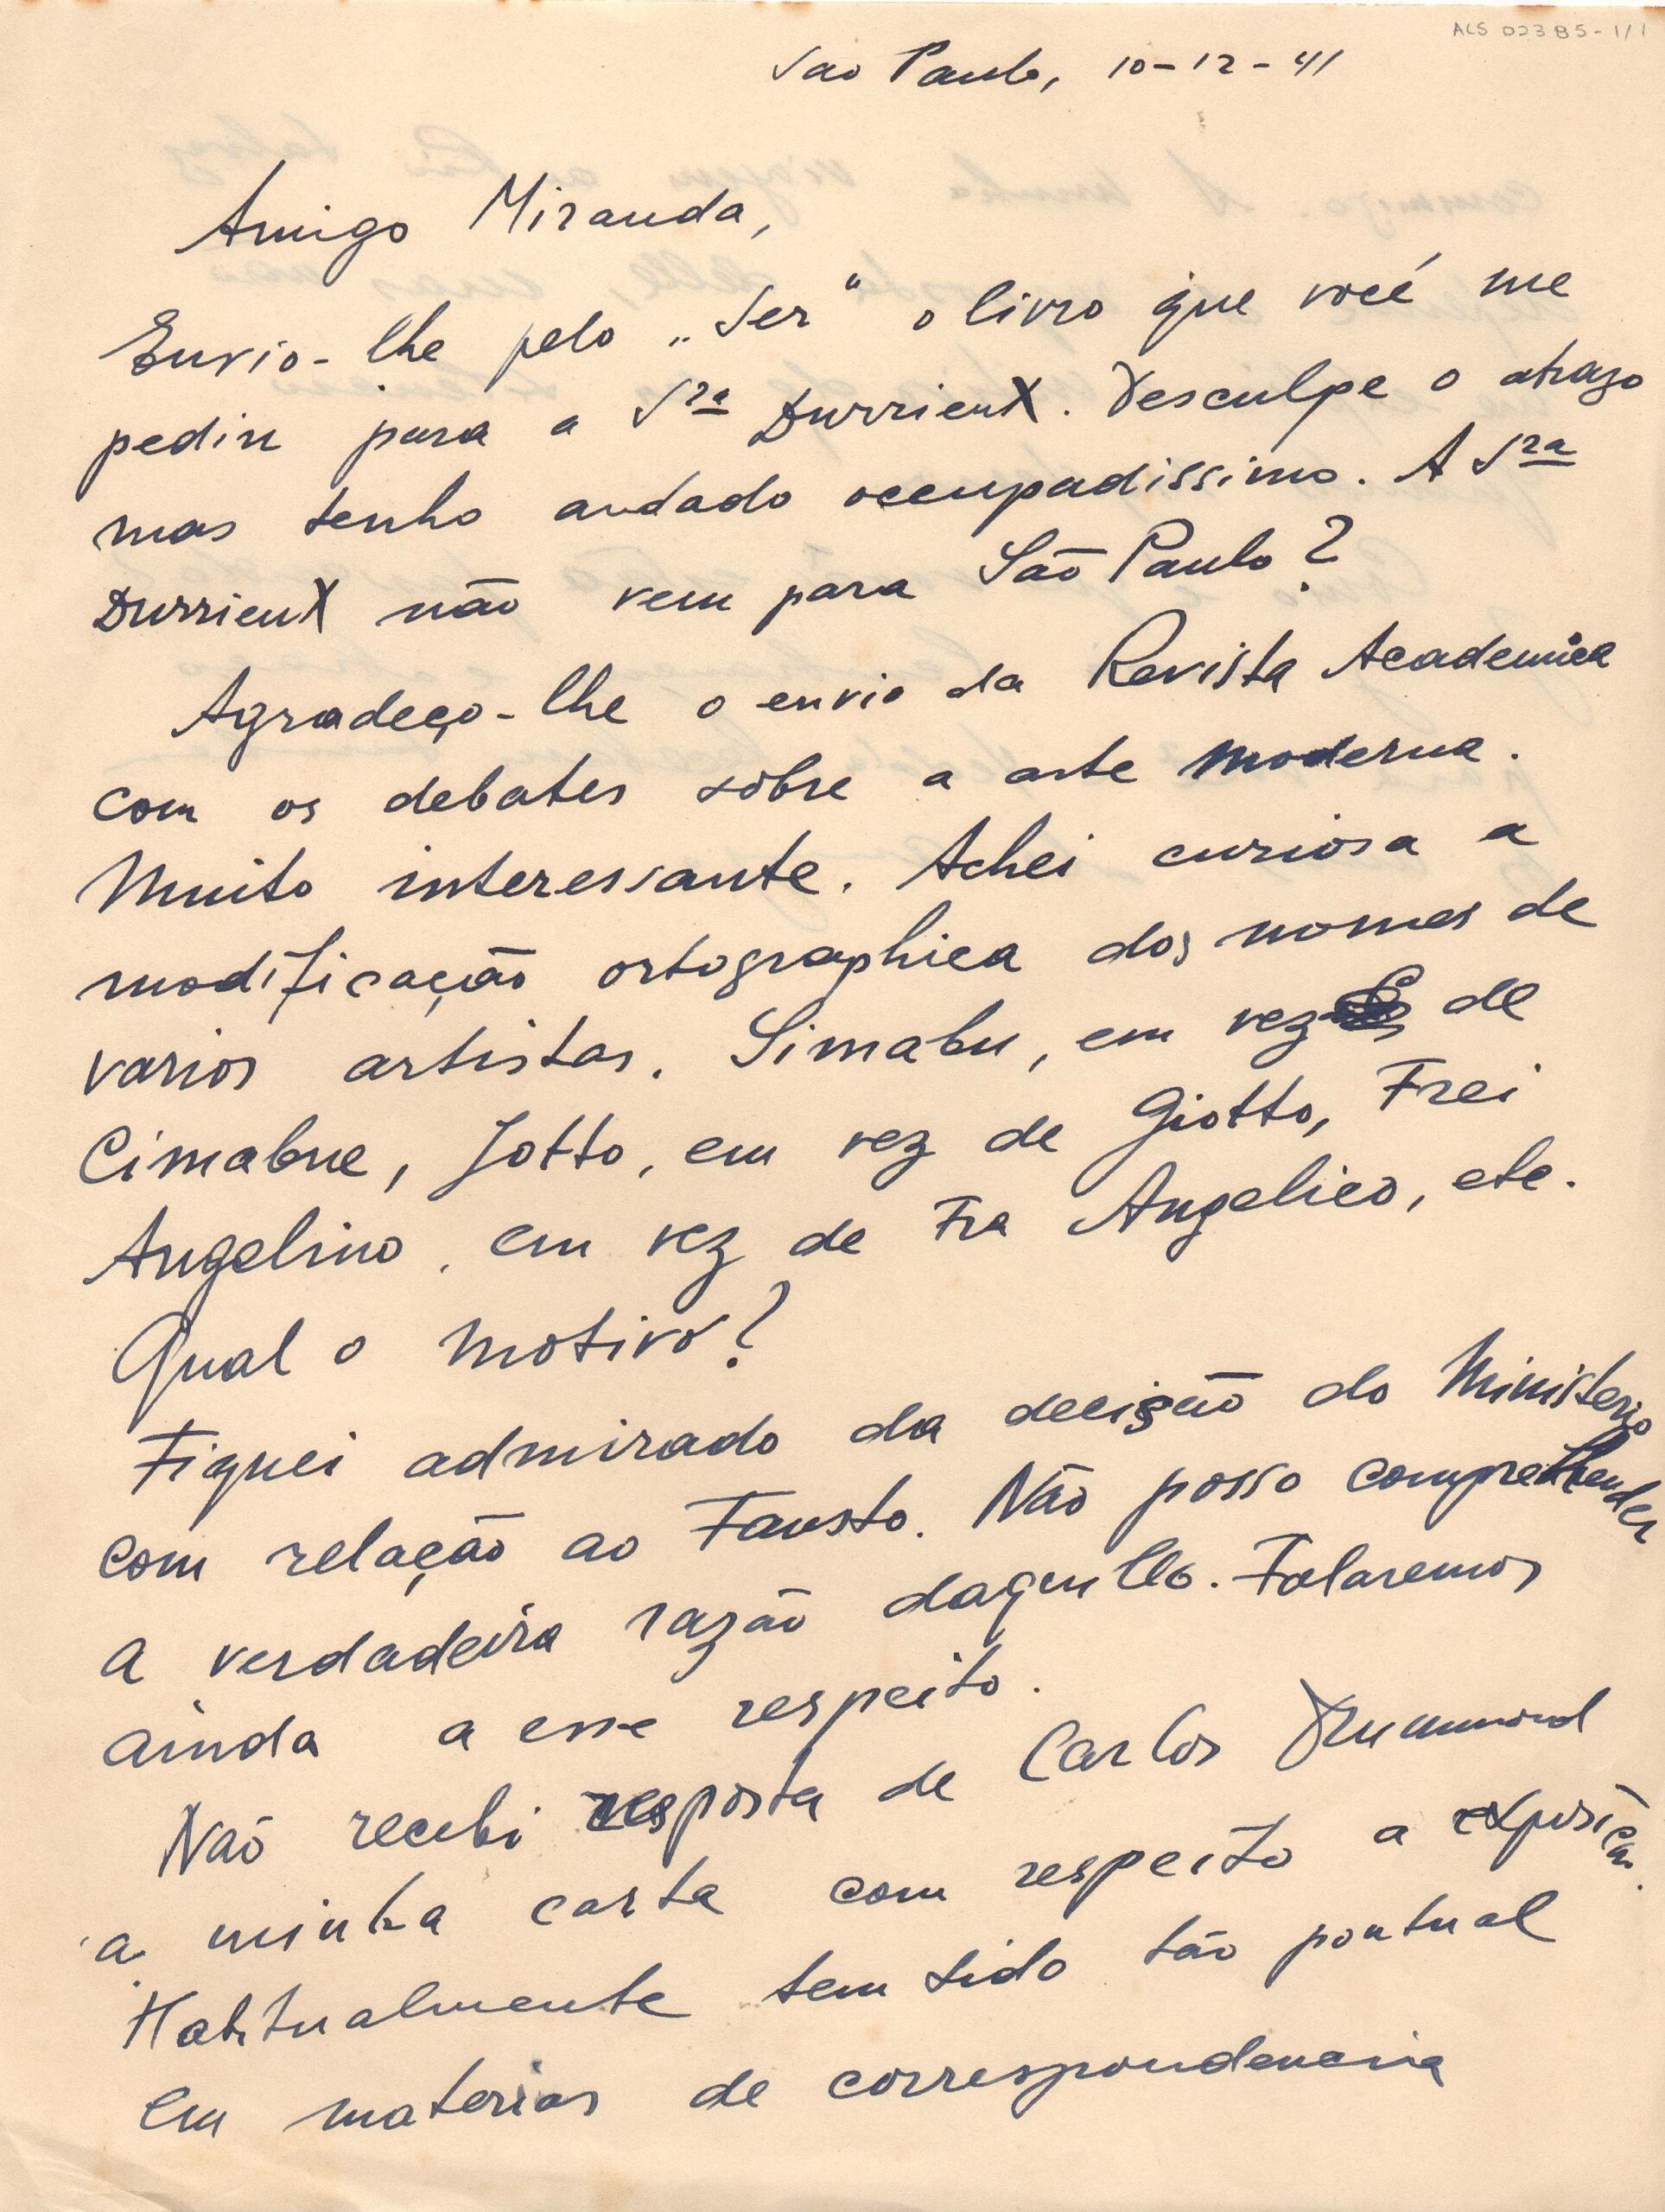 ACS 02385-1/1
São Paulo, 10-12-41
Amigo Miranda,
Envio-lhe pelo „Ser“ o livro que você me
pediu para a Sra Durrieux. Desculpe o atrazo
mas tenho andado occupadissimo. A Sra
Durrieux não vem para São Paulo?
Agradeço-lhe o envio da Revista Academica
com os debates sôbre a arte moderna.
Muito interessante. Achei curiosa a
modificação ortographica dos nomes de
varios artistas. Simabu, em vez de
Cimabue, Jotto, em vez de Giotto, Frei
Angelino, em vez de Fra Angelico, etc.
Qual o motivo?
Fiquei admirado da decisão do Ministerio
com relação ao Fausto. Não posso comprehender
a verdadeira razão daquillo. Falaremos
ainda a esse respeito.
Não recebi resposta de Carlos Drummond
a minha carta com respeito a exposição.
Habitualmente tem sido tão pontual
em materias de correspondencia